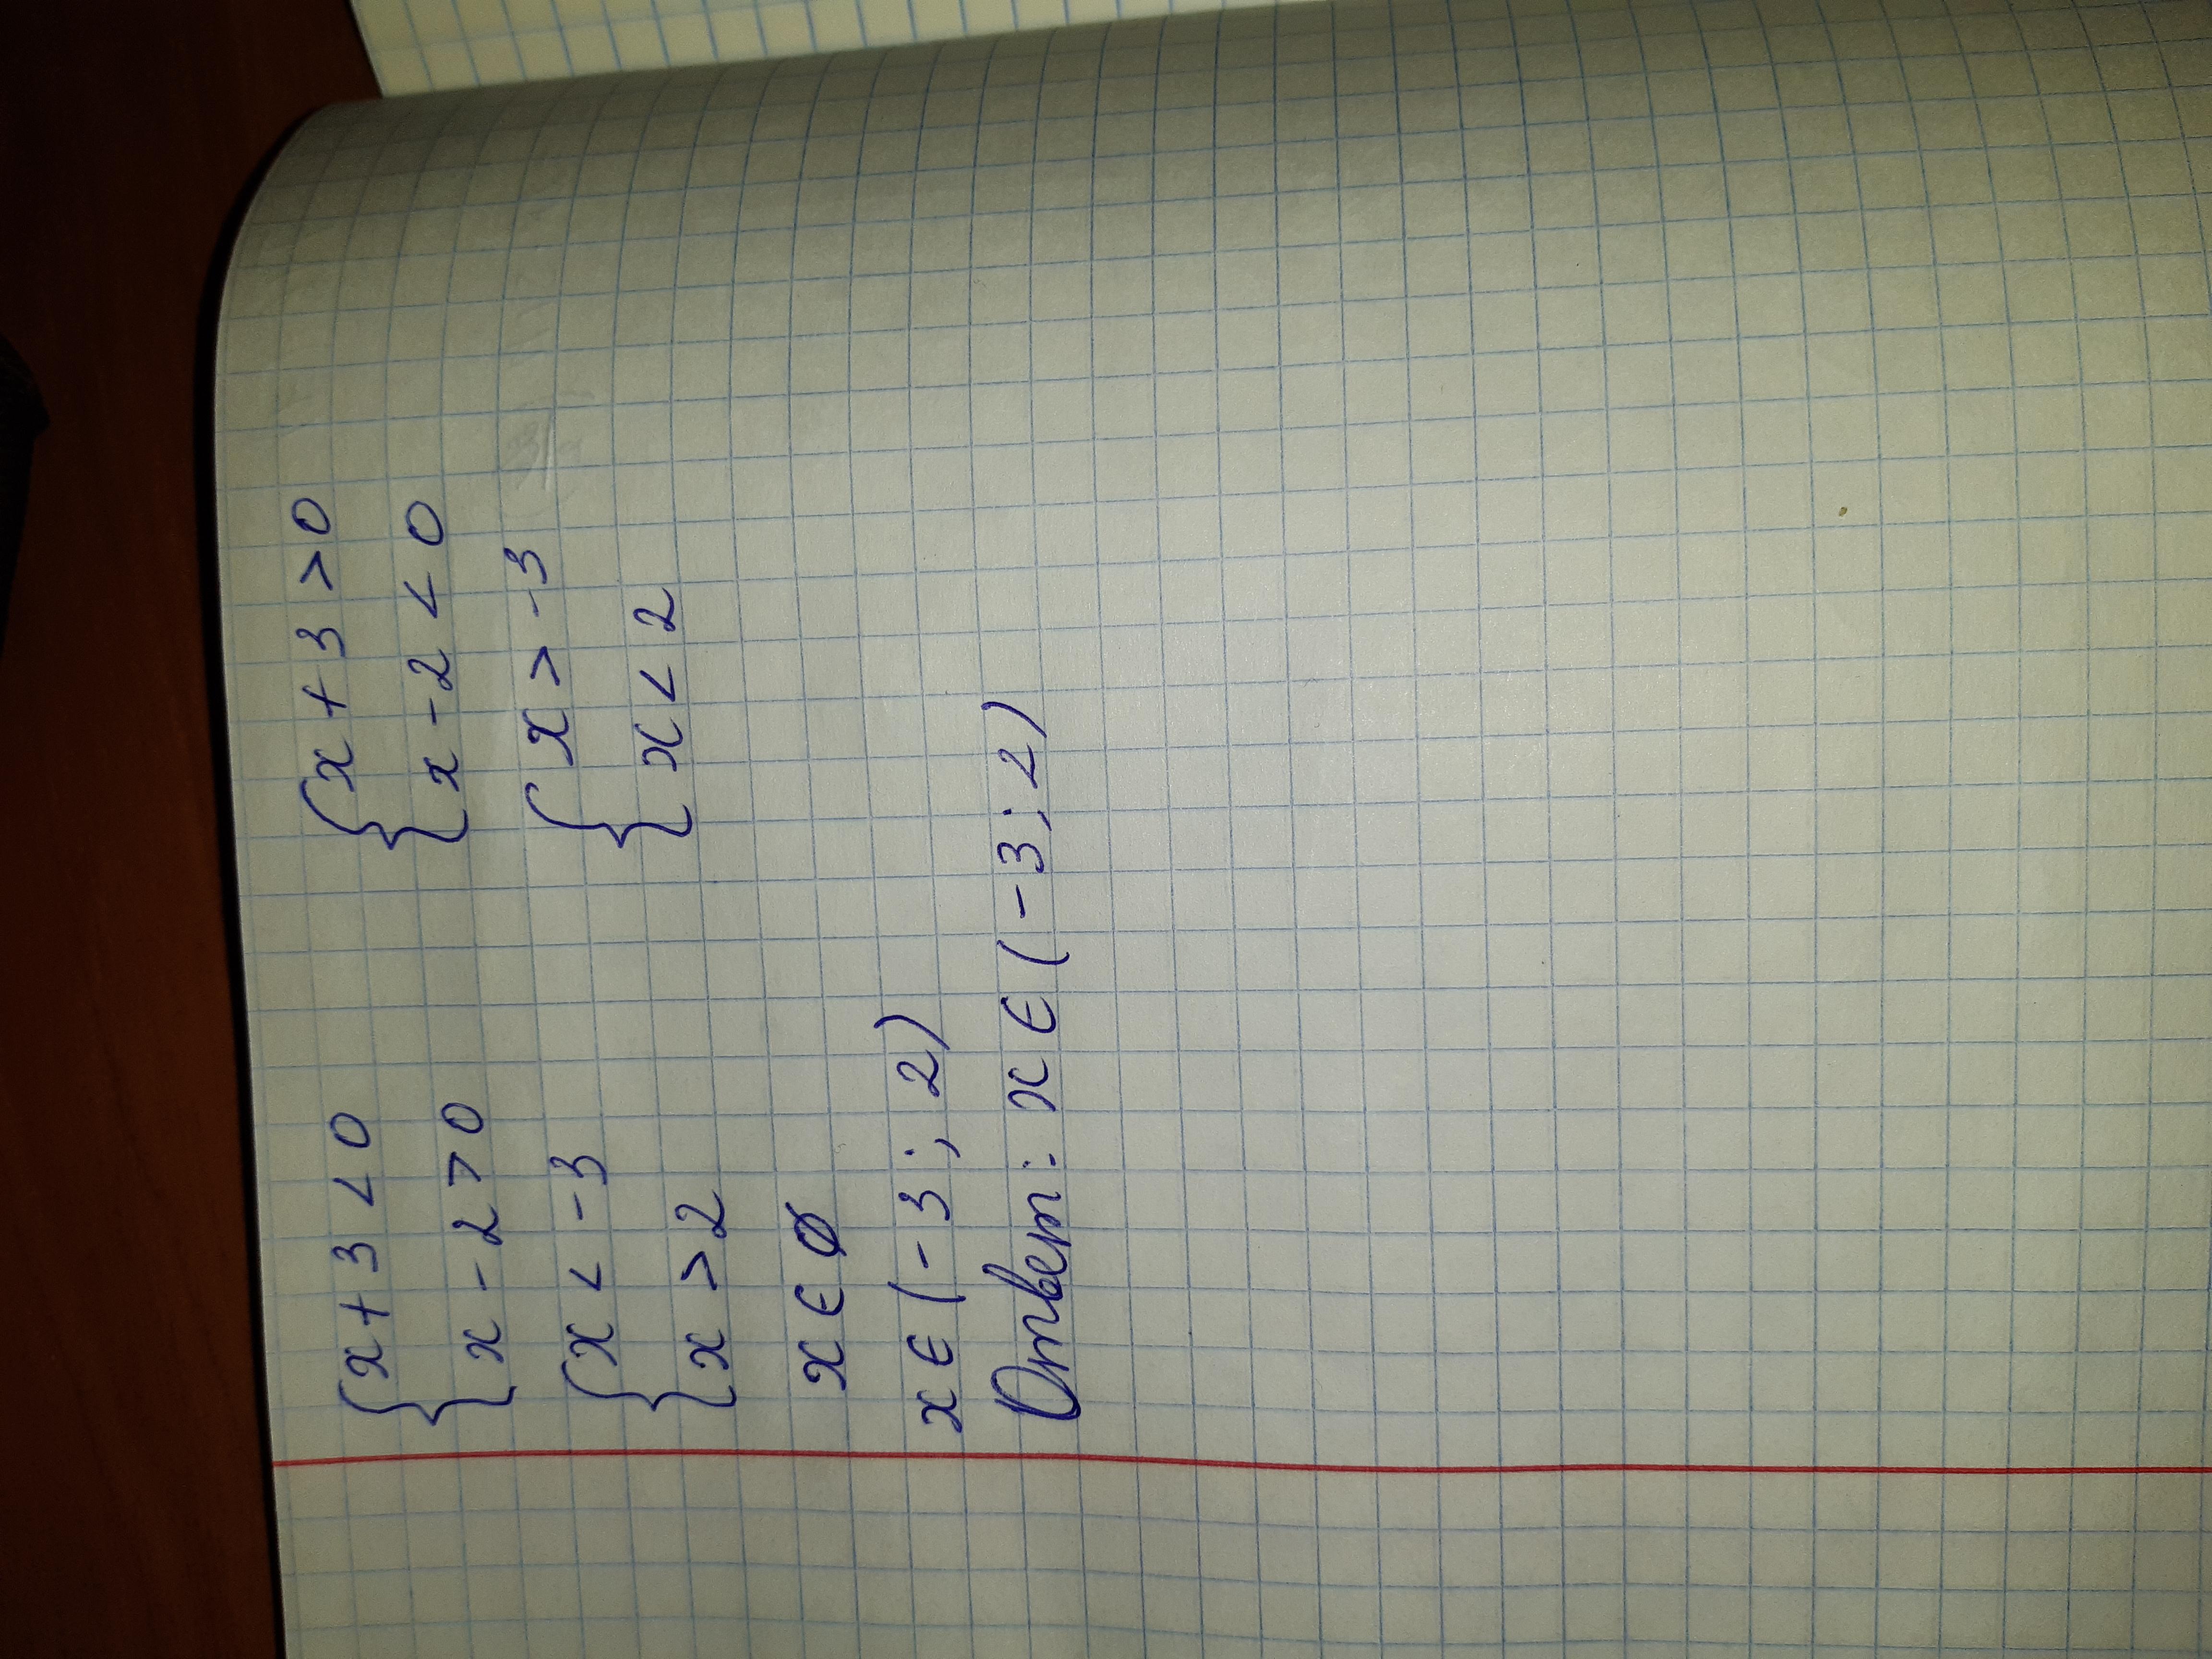 { x + 3 < 0
{ x - 2 > 0
{ x < -3
{ x > 2
x ∈ ∅
{ x + 3 > 0
{ x - 2 < 0
{ x > -3
{ x < 2
x ∈ (-3; 2)
Ответ: x ∈ (-3; 2)